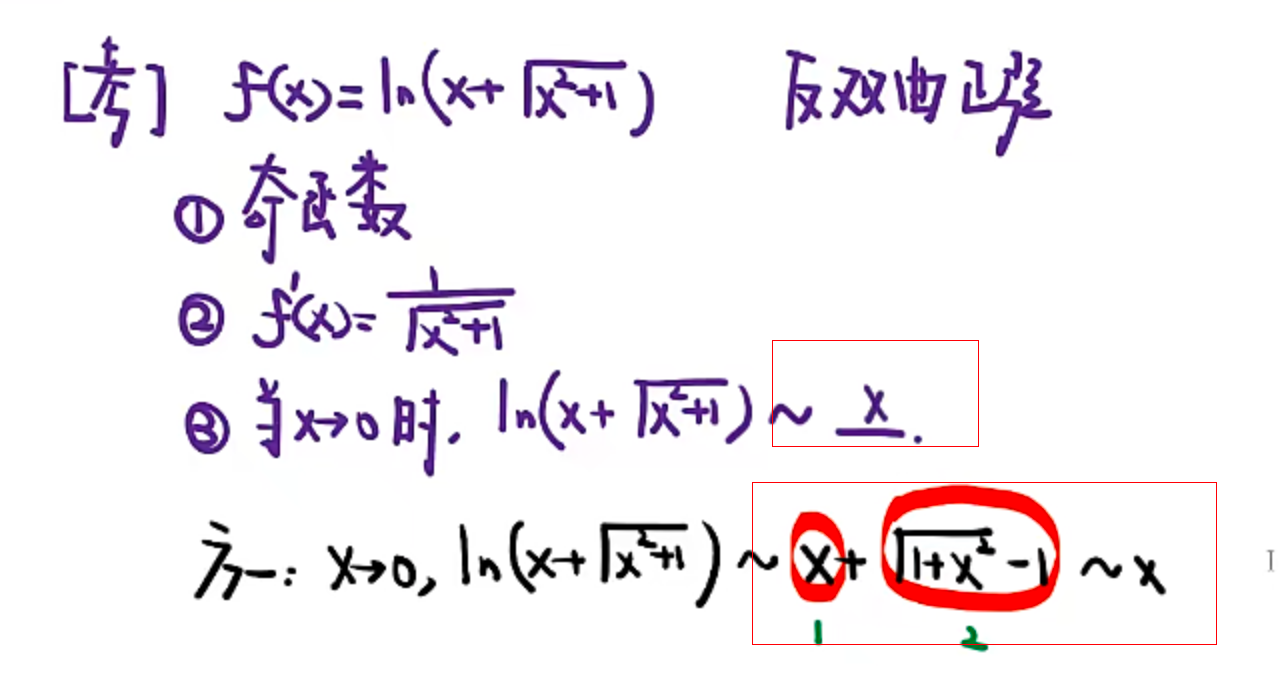 [考] f(x)=ln(x+√(x²+1)) 反双曲正弦
① 奇函数
② f'(x)=1/√(x²+1)
③ 当x→0时, ln(x+√(x²+1)) ~ x.
方一: x→0, ln(x+√(x²+1)) ~ x+√(1+x²)-1 ~ x
1 2